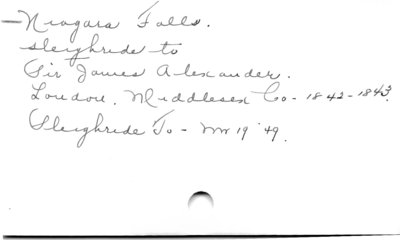 —Niagara Falls.
sleighride to
Sir James Alexander.
London, Middlesex Co- 1842-1843.
Sleighride To - 19 '49.